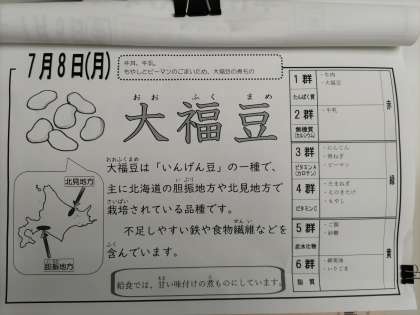 7月8日(月)
牛丼、牛乳、
もやしとピーマンのごまいため、大福豆の煮もの
おお ふく まめ
大福豆
おおふくまめ
大福豆は「いんげん豆」の一種で、
いぶり
主に北海道の胆振地方や北見地方で
さいばい
栽培されている品種です。
せんい
不足しやすい鉄や食物繊維などを
ふく
含んでいます。
北見地方
胆振地方
給食では、甘い味付けの煮ものにしています。
1群
たんぱく質
・牛肉
・大福豆
2群
無機質
(カルシウム)
・牛乳
3群
ビタミンA
(カロテン)
・にんじん
・青ねぎ
・ピーマン
4群
ビタミンC
・たまねぎ
・えのきたけ
・もやし
5群
炭水化物
・ご飯
・砂糖
6群
脂質
・綿実油
・いりごま
赤
緑
黄